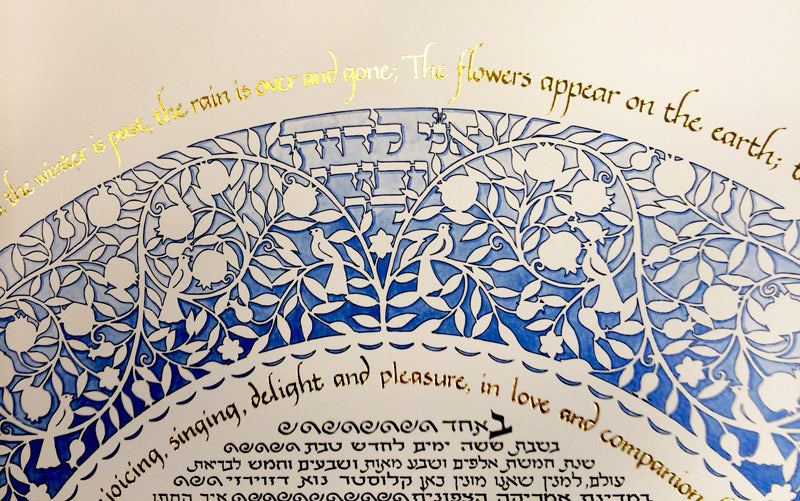 the winter is past, the rain is over and gone; The flowers appear on the earth;
אני לדודי
ודודי
לי
ejoicing, singing, delight and pleasure, in love and companion
באחד
בשבת ששה ימים לחדש טבת
שנת חמשת אלפים ושבע מאות ושבעים וחמש לבריאת
עולם, למנין שאנו מונין כאן קלוסטר נוא
במדינת אמריקה הצפונית איך החתן